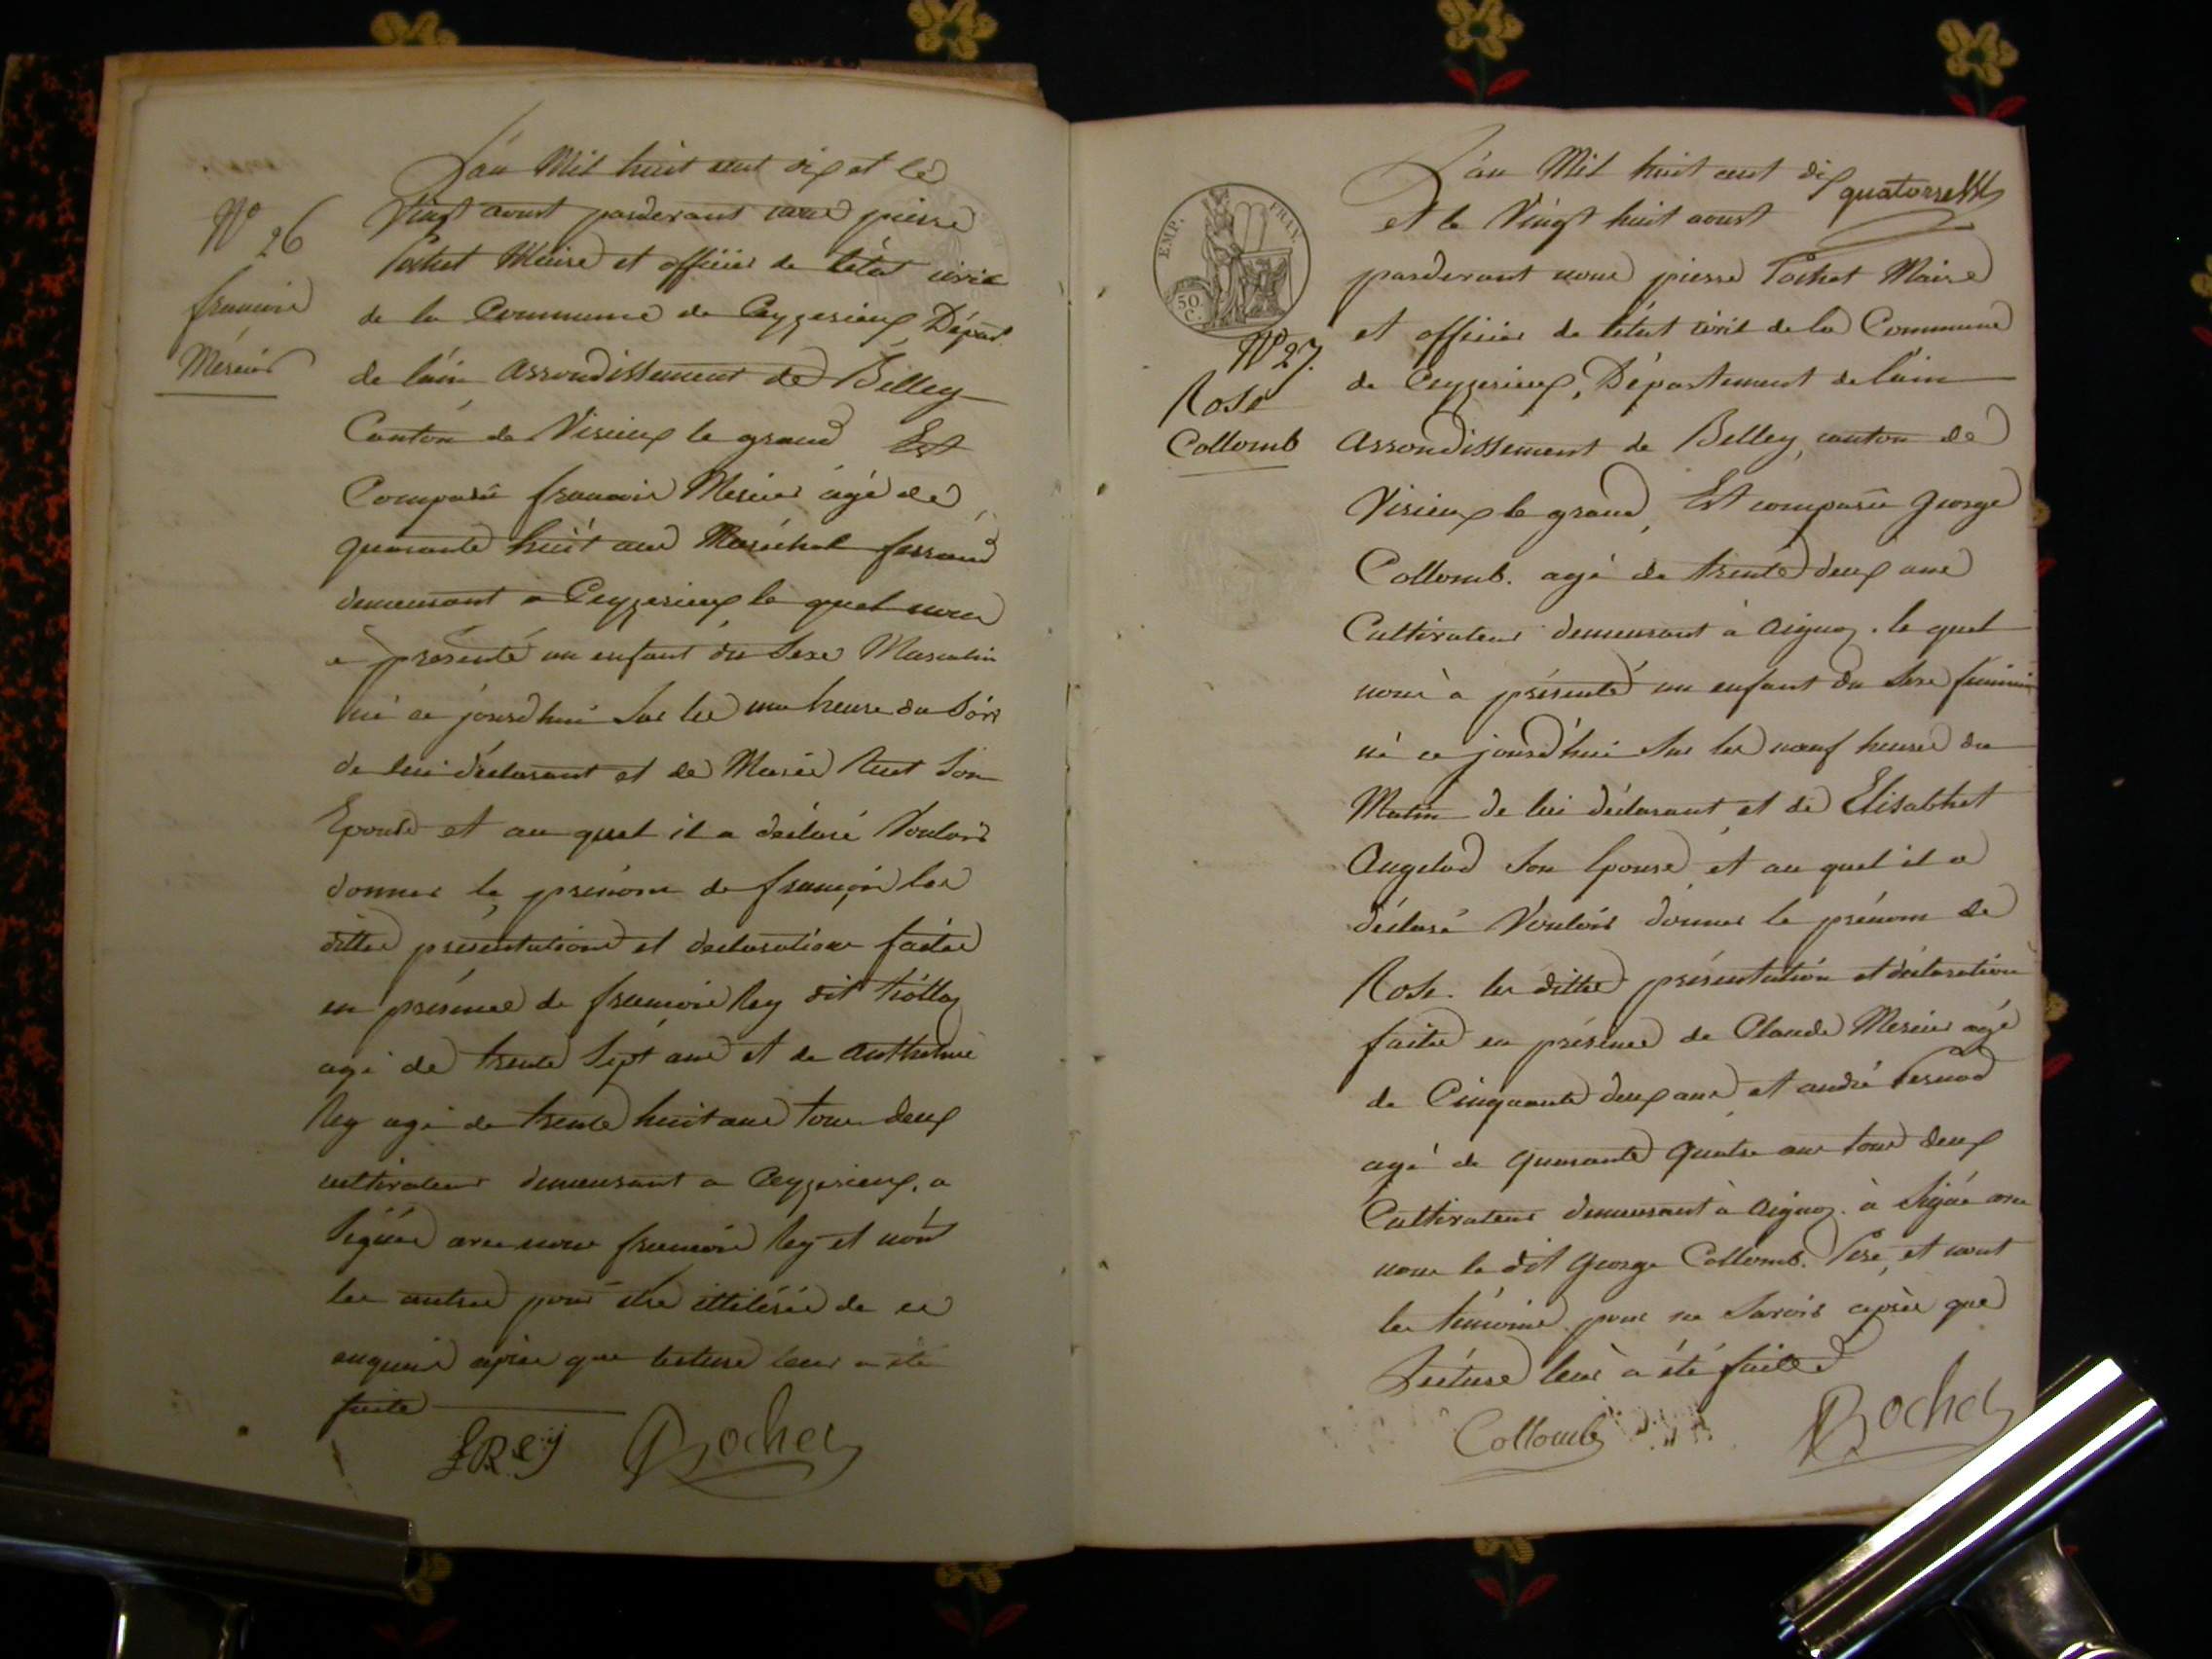 N° 26
françois
Mérier
L'an Mil huit cent dix et le
Vingt aoust pardevant nous pierre
Pochet Maire et officier de l'état civil
de la Commune de Ceyzerieux, Départ.
de l'ain arrondissement de Belley
Canton de Virieux le grand Est
Comparu françois Merier agé de
quarante huit ans Maréchal ferrand
demeurant a Ceyzerieux le quel nous
a présenté un enfant du Sexe Masculin
né ce jourd'hui sur les une heure du Soir
de lui déclarant et de Marie Son
Epouse et au quel il a déclaré Vouloir
donner le prénom de françois les
dittes présentations et declarations faites
en présence de francois Rey dit
agé de trente Sept ans et de Anthelme
Rey agé de trente huit ans tous deux
cultivateurs demeurant a Ceyzerieux, a
Signé avec nous francois Rey et non
les autres pour etre illitérés de ce
enquis après que lecture leur a été
faite
fRey Pochet
EMP. FRAN.
50 C.
N° 27.
Rose
Collomb
quatorze
L'an Mil huit cent dix
et le Vingt huit aoust
pardevant nous pierre Pochet Maire
et officier de l'état civil de la Commune
de Ceyzerieux, Département de l'ain
arrondissement de Belley, canton de
Virieux le grand, Est comparu George
Collomb. agé de trente deux ans
Cultivateur demeurant à Aignoz. le quel
nous a présenté un enfant du Sexe féminin
né ce jourd'hui Sur les neuf heures du
Matin de lui déclarant et de Elisabhet
Son Epouse, et au quel il a
déclaré Vouloir donner le prénom de
Rose. les dittes présentation et déclaration
faites en présence de Claude Merier agé
de Cinquante deux ans et andré
agé de quarante quatre ans tous deux
Cultivateurs demeurant à Aignoz. à Signé avec
nous le dit George Collomb. Pere, et non
les témoins pour ne Savoir après que
Lecture leur a été faite
Collomb Pochet